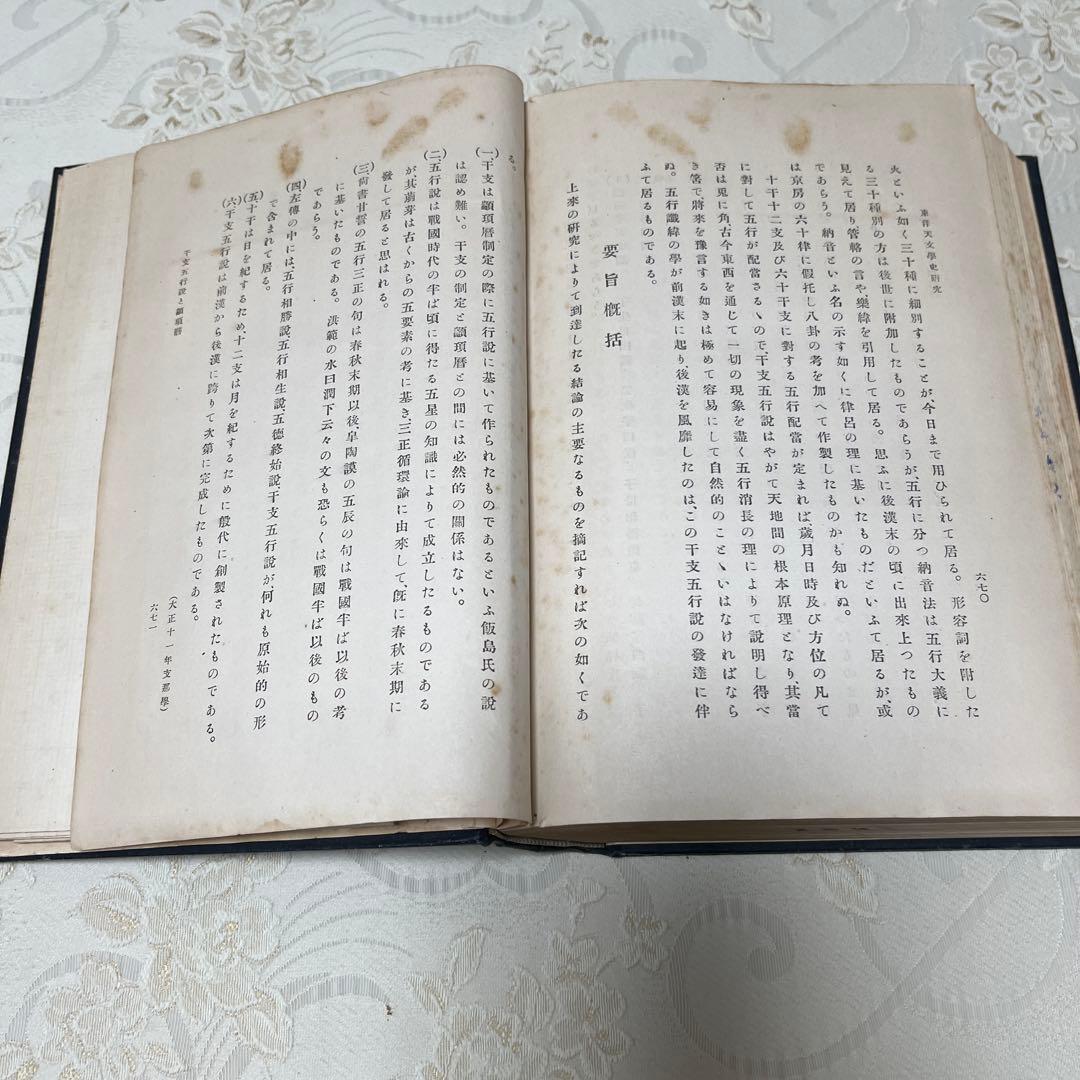 東洋天文學史研究
六七〇
火といふ如く三十種に細別することが、今日まで用ひられて居る。形容詞を附した
る三十種別の方は後世に附加したものであらうが、五行に分つ納音法は五行大義に
見えて居り管輅の言や樂緯を引用して居る。思ふに後漢末の頃に出來上つたもの
であらう。納音といふ名の示す如くに律呂の理に基いたものだといふて居るが、或
は京房の六十律に假托し八卦の考を加へて作製したものかも知れぬ。
十干十二支及び六十干支に對する五行配當が定まれば、歲月日時及び方位の凡て
に對して五行が配當さるゝので干支五行說はやがて天地間の根本原理となり、其當
否は兎に角古今東西を通じて一切の現象を盡く五行消長の理によりて說明し得べ
き筈で、將來を豫言する如きは極めて容易にして自然的のことゝいはなければなら
ぬ。五行讖緯の學が前漢末に起り、後漢を風靡したのは、この干支五行說の發達に伴
ふて居るものである。
要旨槪括
上來の硏究によりて到達したる結論の主要なるものを摘記すれば次の如くであ
る。
(一)干支は顓頊曆制定の際に五行說に基いて作られたものであるといふ飯島氏の說
は認め難い。干支の制定と顓頊曆との間には必然的の關係はない。
(二)五行說は戰國時代の半ば頃に得たる五星の知識によりて成立したるものである
が其萠芽は古くからの五要素の考に基き、三正循環論に由來して、旣に春秋末期に
發して居ると思はれる。
(三)尙書甘誓の五行三正の句は春秋末期以後、皐陶謨の五辰の句は戰國半ば以後の考
に基いたものである。洪範の水曰潤下云々の文も恐らくは戰國半ば以後のもの
であらう。
(四)左傳の中には、五行相勝說、五行相生說、五德終始說、干支五行說が何れも原始的の形
で含まれて居る。
(五)十干は日を紀するため、十二支は月を紀するために殷代に創製されたものである。
(六)干支五行說は前漢から後漢に跨りて次第に完成したものである。
(大正十一年支那學)
干支五行說と顓頊曆
六七一